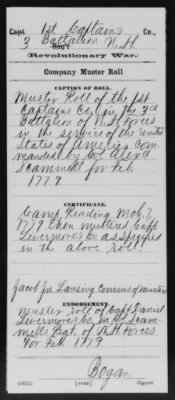 Capt. 1st Captains Co.,
3 Battalion N.H.
Reg't.
Revolutionary War.
Company Muster Roll
CAPTION OF ROLL.
Muster Roll of the 1st
Captains Co. in the 3d
Battalion of N.H. forces
in the service of the United
States of America Com-
manded by Col. Alexd
Scammell for Feb.
1779
CERTIFICATE.
Camp Reading Mch. 7,
1779 then mustered Capt
Livermores Co as specified
in the above roll.
Jacob Jn Lansing Comsns of musters
ENDORSEMENT.
muster roll of Capt Daniel
Livermores Co, in Col Scam-
mells Regt. of N.H. forces
for Feb. 1779
Bogan
[OVER] Copyist.